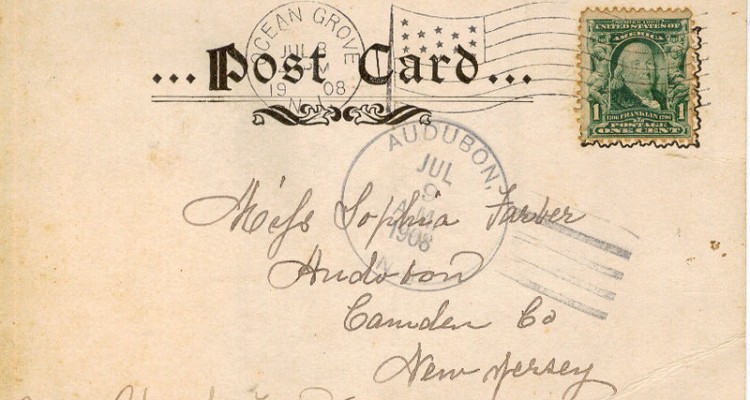 OCEAN GROVE
JUL 8
PM
19 08
N.J.
... Post Card ...
UNITED STATES OF
AMERICA
1 1
FRANKLIN
POSTAGE
ONE CENT
AUDUBON,
JUL
9
A.M.
1908
N.
Miss Sophia Farber
Audobon
Camden Co
New Jersey